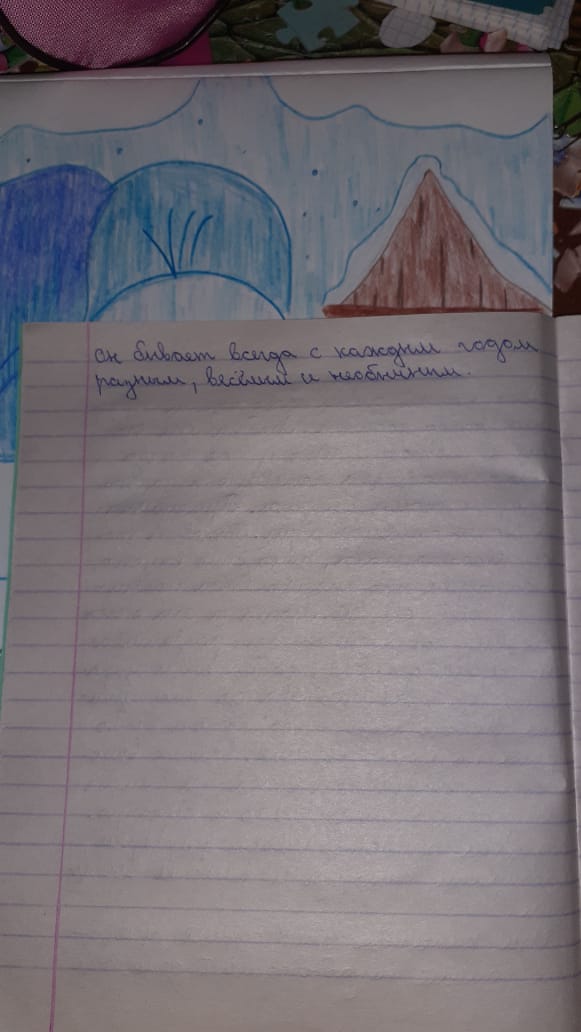 он бывает всегда с каждым годом
разным, весёлым и необычным.